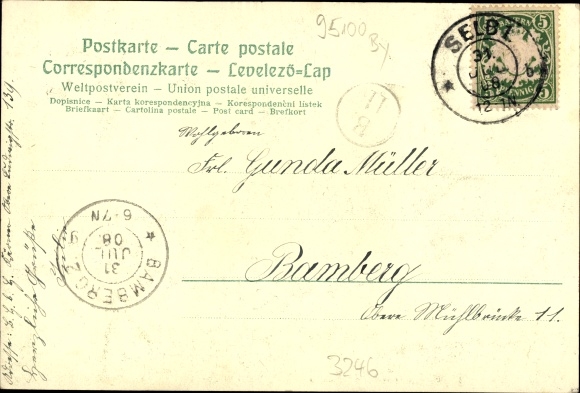 95100 By.
Postkarte – Carte postale
Correspondenzkarte – Levelező=Lap
Weltpostverein – Union postale universelle
Dopisnice – Karta korespondencyjna – Korespondenční lístek
Briefkaart – Cartolina postale – Post card – Brefkort
BAYERN
5 5
PFENNIG
SELB
31
JUL
08
12-1N
11
8
Wohlgeboren
Frl. Gunda Müller
Bamberg
Obere Mühlbrücke 11.
BAMBERG 2
31
JUL
08
6-7N
Herzliche Grüße
3246